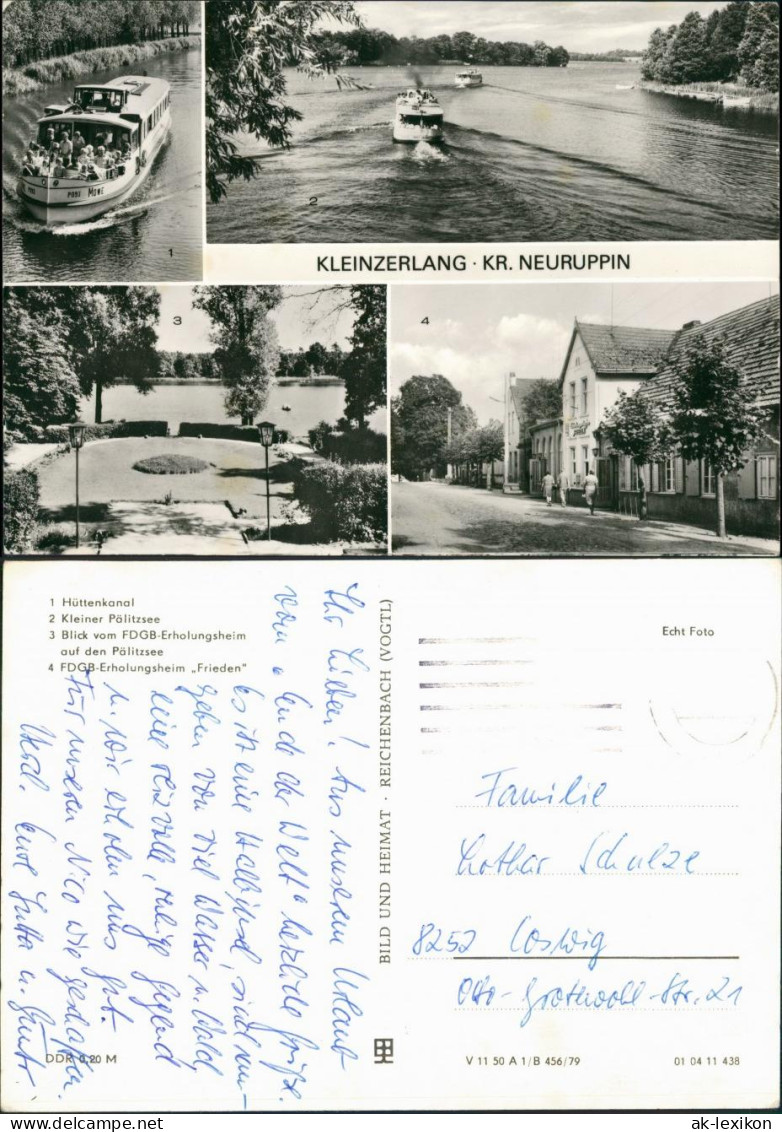 PODE MÖWE
1
2
KLEINZERLANG · KR. NEURUPPIN
3
4
1 Hüttenkanal
2 Kleiner Pälitzsee
3 Blick vom FDGB-Erholungsheim
auf den Pälitzsee
4 FDGB-Erholungsheim „Frieden"
Ihr Lieben! Aus unserem Urlaub
vom „Ende der Welt" herzliche Grüße.
Es ist eine Halbinsel, sind um-
geben von viel Wasser u. Wald,
eine reizvolle, ruhige Gegend
u. wir erholen uns gut.
Für unseren Nico wie geschaffen.
Herzl. Eure Jutta u. Günter
BILD UND HEIMAT · REICHENBACH (VOGTL)
Echt Foto
Familie
Lothar Schulze
8252 Coswig
Otto-Grotewohl-Str. 21
DDR 0,20 M
V 11 50 A 1/B 456/79
01 04 11 438
ak-lexikon